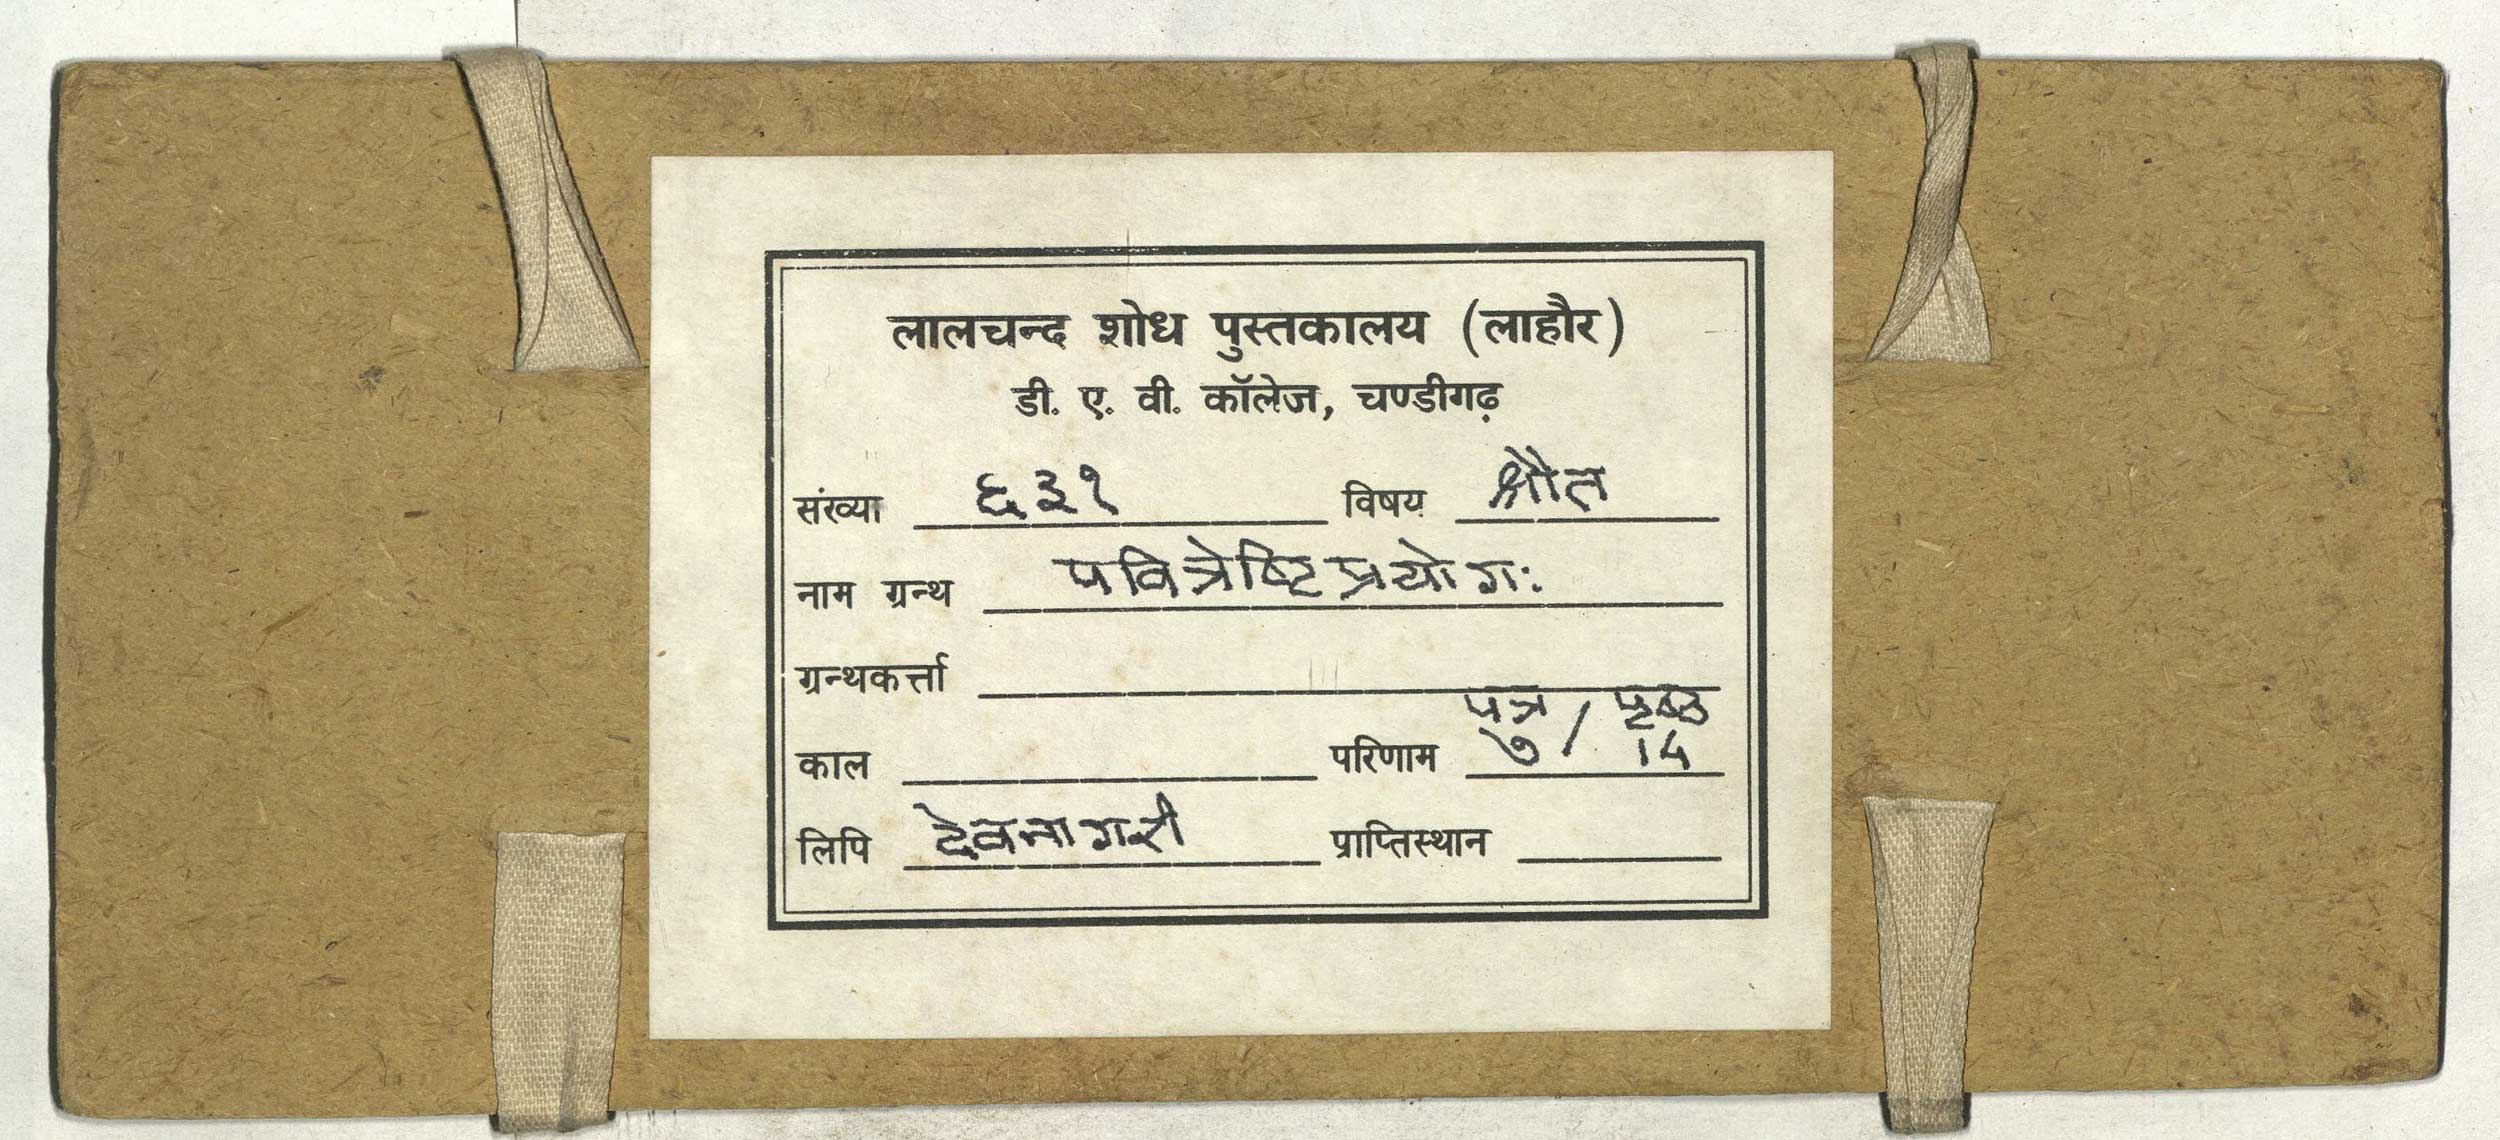 लालचन्द शोध पुस्तकालय (लाहौर)
डी. ए. वी. कॉलेज, चण्डीगढ़
संख्या ६३१ विषय श्रौत
नाम ग्रन्थ पवित्रेष्टिप्रयोगः
ग्रन्थकर्त्ता
पत्र / पृष्ठ
काल परिणाम ७ / 14
लिपि देवनागरी प्राप्तिस्थान